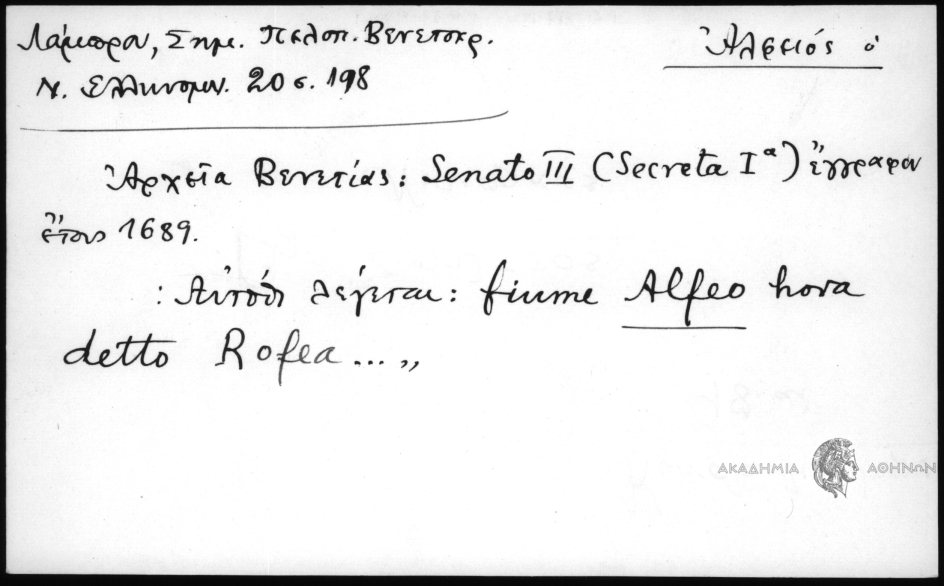 Λάμπρου, Σημ. Πελοπ. Βενετοκρ.
Ν. Ελληνομν. 20 σ. 198
Ἀλφειός ὁ
Ἀρχεῖα Βενετίας: Senato III (Secreta Iα) ἔγγραφον
ἔτους 1689.
: Αὐτόθι λέγεται: fiume Alfeo hora
detto Rofea ... „
ΑΚΑΔΗΜΙΑ ΑΘΗΝΩΝ